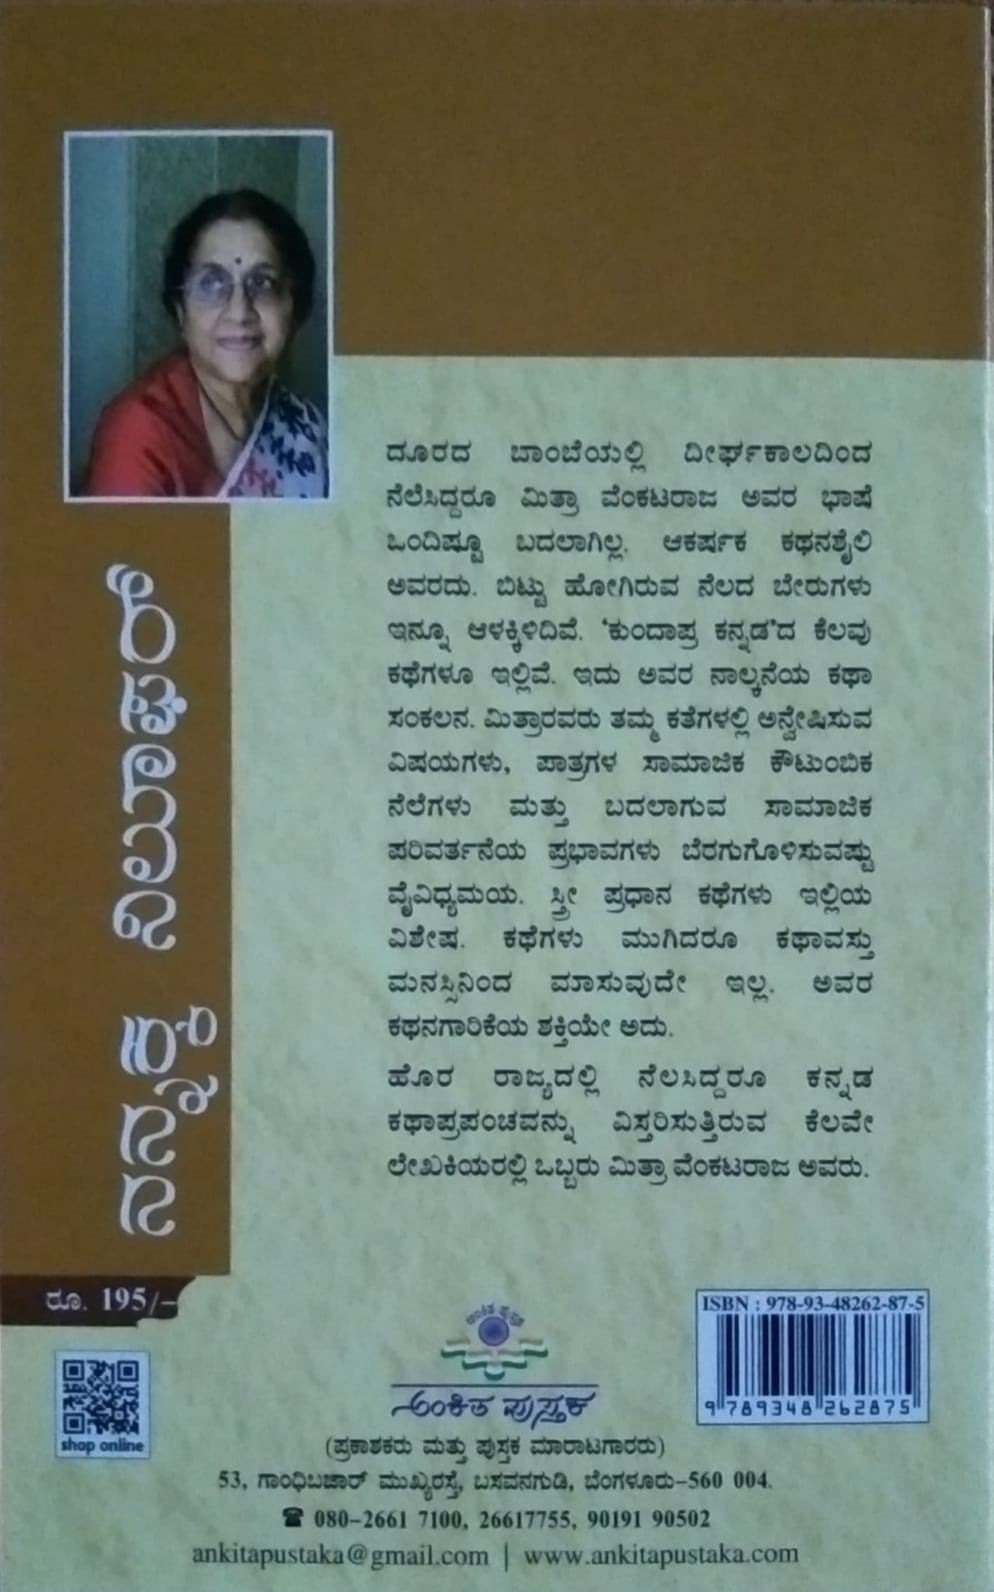 ನನ್ನಕ್ಕ ನಿಲೂಫರ್
ದೂರದ ಬಾಂಬೆಯಲ್ಲಿ ದೀರ್ಘಕಾಲದಿಂದ
ನೆಲೆಸಿದ್ದರೂ ಮಿತ್ರಾ ವೆಂಕಟರಾಜ ಅವರ ಭಾಷೆ
ಒಂದಿಷ್ಟೂ ಬದಲಾಗಿಲ್ಲ. ಆಕರ್ಷಕ ಕಥನಶೈಲಿ
ಅವರದು. ಬಿಟ್ಟು ಹೋಗಿರುವ ನೆಲದ ಬೇರುಗಳು
ಇನ್ನೂ ಆಳಕ್ಕಿಳಿದಿವೆ. 'ಕುಂದಾಪ್ರ ಕನ್ನಡ'ದ ಕೆಲವು
ಕಥೆಗಳೂ ಇಲ್ಲಿವೆ. ಇದು ಅವರ ನಾಲ್ಕನೆಯ ಕಥಾ
ಸಂಕಲನ. ಮಿತ್ರಾರವರು ತಮ್ಮ ಕತೆಗಳಲ್ಲಿ ಅನ್ವೇಷಿಸುವ
ವಿಷಯಗಳು, ಪಾತ್ರಗಳ ಸಾಮಾಜಿಕ ಕೌಟುಂಬಿಕ
ನೆಲೆಗಳು ಮತ್ತು ಬದಲಾಗುವ ಸಾಮಾಜಿಕ
ಪರಿವರ್ತನೆಯ ಪ್ರಭಾವಗಳು ಬೆರಗುಗೊಳಿಸುವಷ್ಟು
ವೈವಿಧ್ಯಮಯ. ಸ್ತ್ರೀ ಪ್ರಧಾನ ಕಥೆಗಳು ಇಲ್ಲಿಯ
ವಿಶೇಷ. ಕಥೆಗಳು ಮುಗಿದರೂ ಕಥಾವಸ್ತು
ಮನಸ್ಸಿನಿಂದ ಮಾಸುವುದೇ ಇಲ್ಲ. ಅವರ
ಕಥನಗಾರಿಕೆಯ ಶಕ್ತಿಯೇ ಅದು.
ಹೊರ ರಾಜ್ಯದಲ್ಲಿ ನೆಲಸಿದ್ದರೂ ಕನ್ನಡ
ಕಥಾಪ್ರಪಂಚವನ್ನು ವಿಸ್ತರಿಸುತ್ತಿರುವ ಕೆಲವೇ
ಲೇಖಕಿಯರಲ್ಲಿ ಒಬ್ಬರು ಮಿತ್ರಾ ವೆಂಕಟರಾಜ ಅವರು.
ರೂ. 195/-
shop online
ಅಂಕಿತ ಪುಸ್ತಕ
ಅಂಕಿತ ಪುಸ್ತಕ
ISBN : 978-93-48262-87-5
9 789348 262875
(ಪ್ರಕಾಶಕರು ಮತ್ತು ಪುಸ್ತಕ ಮಾರಾಟಗಾರರು)
53, ಗಾಂಧಿಬಜಾರ್ ಮುಖ್ಯರಸ್ತೆ, ಬಸವನಗುಡಿ, ಬೆಂಗಳೂರು-560 004.
☎ 080-2661 7100, 26617755, 90191 90502
ankitapustaka@gmail.com | www.ankitapustaka.com